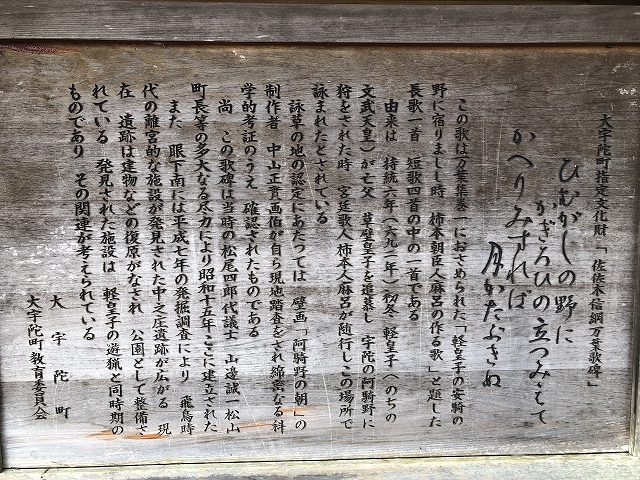 大宇陀町指定文化財「佐佐木信綱万葉歌碑」
ひむがしの野に
かぎろひの立つみえて
かへりみすれば
月かたぶきぬ
この歌は万葉集巻一におさめられた「軽皇子の安騎の
野に宿りましし時 柿本朝臣人麻呂の作る歌」と題した
長歌一首 短歌四首の中の一首である
由来は 持統六年（六九二年）初冬 軽皇子（のちの
文武天皇）が亡父 草壁皇子を追慕し 宇陀の阿騎野に
狩をされた時 宮廷歌人柿本人麻呂が随行しこの場所で
詠まれたとされている
詠草の地の認定にあたつては 壁画「阿騎野の朝」の
制作者 中山正實画伯が自ら現地踏査をされ綿密なる科
学的考証のうえ 確認されたものである
尚 この歌碑は当時の松尾四郎代議士 山邊誠一松山
町長等の多大なる尽力により昭和十五年ここに建立された
また 眼下南には平成七年の発掘調査により 飛鳥時
代の離宮的な施設が発見された中之庄遺跡が広がる 現
在 遺跡は建物などの復原がなされ 公園として整備さ
れている 発見された施設は 軽皇子の遊猟と同時期の
ものであり その関連が考えられている
大宇陀町
大宇陀町教育委員会